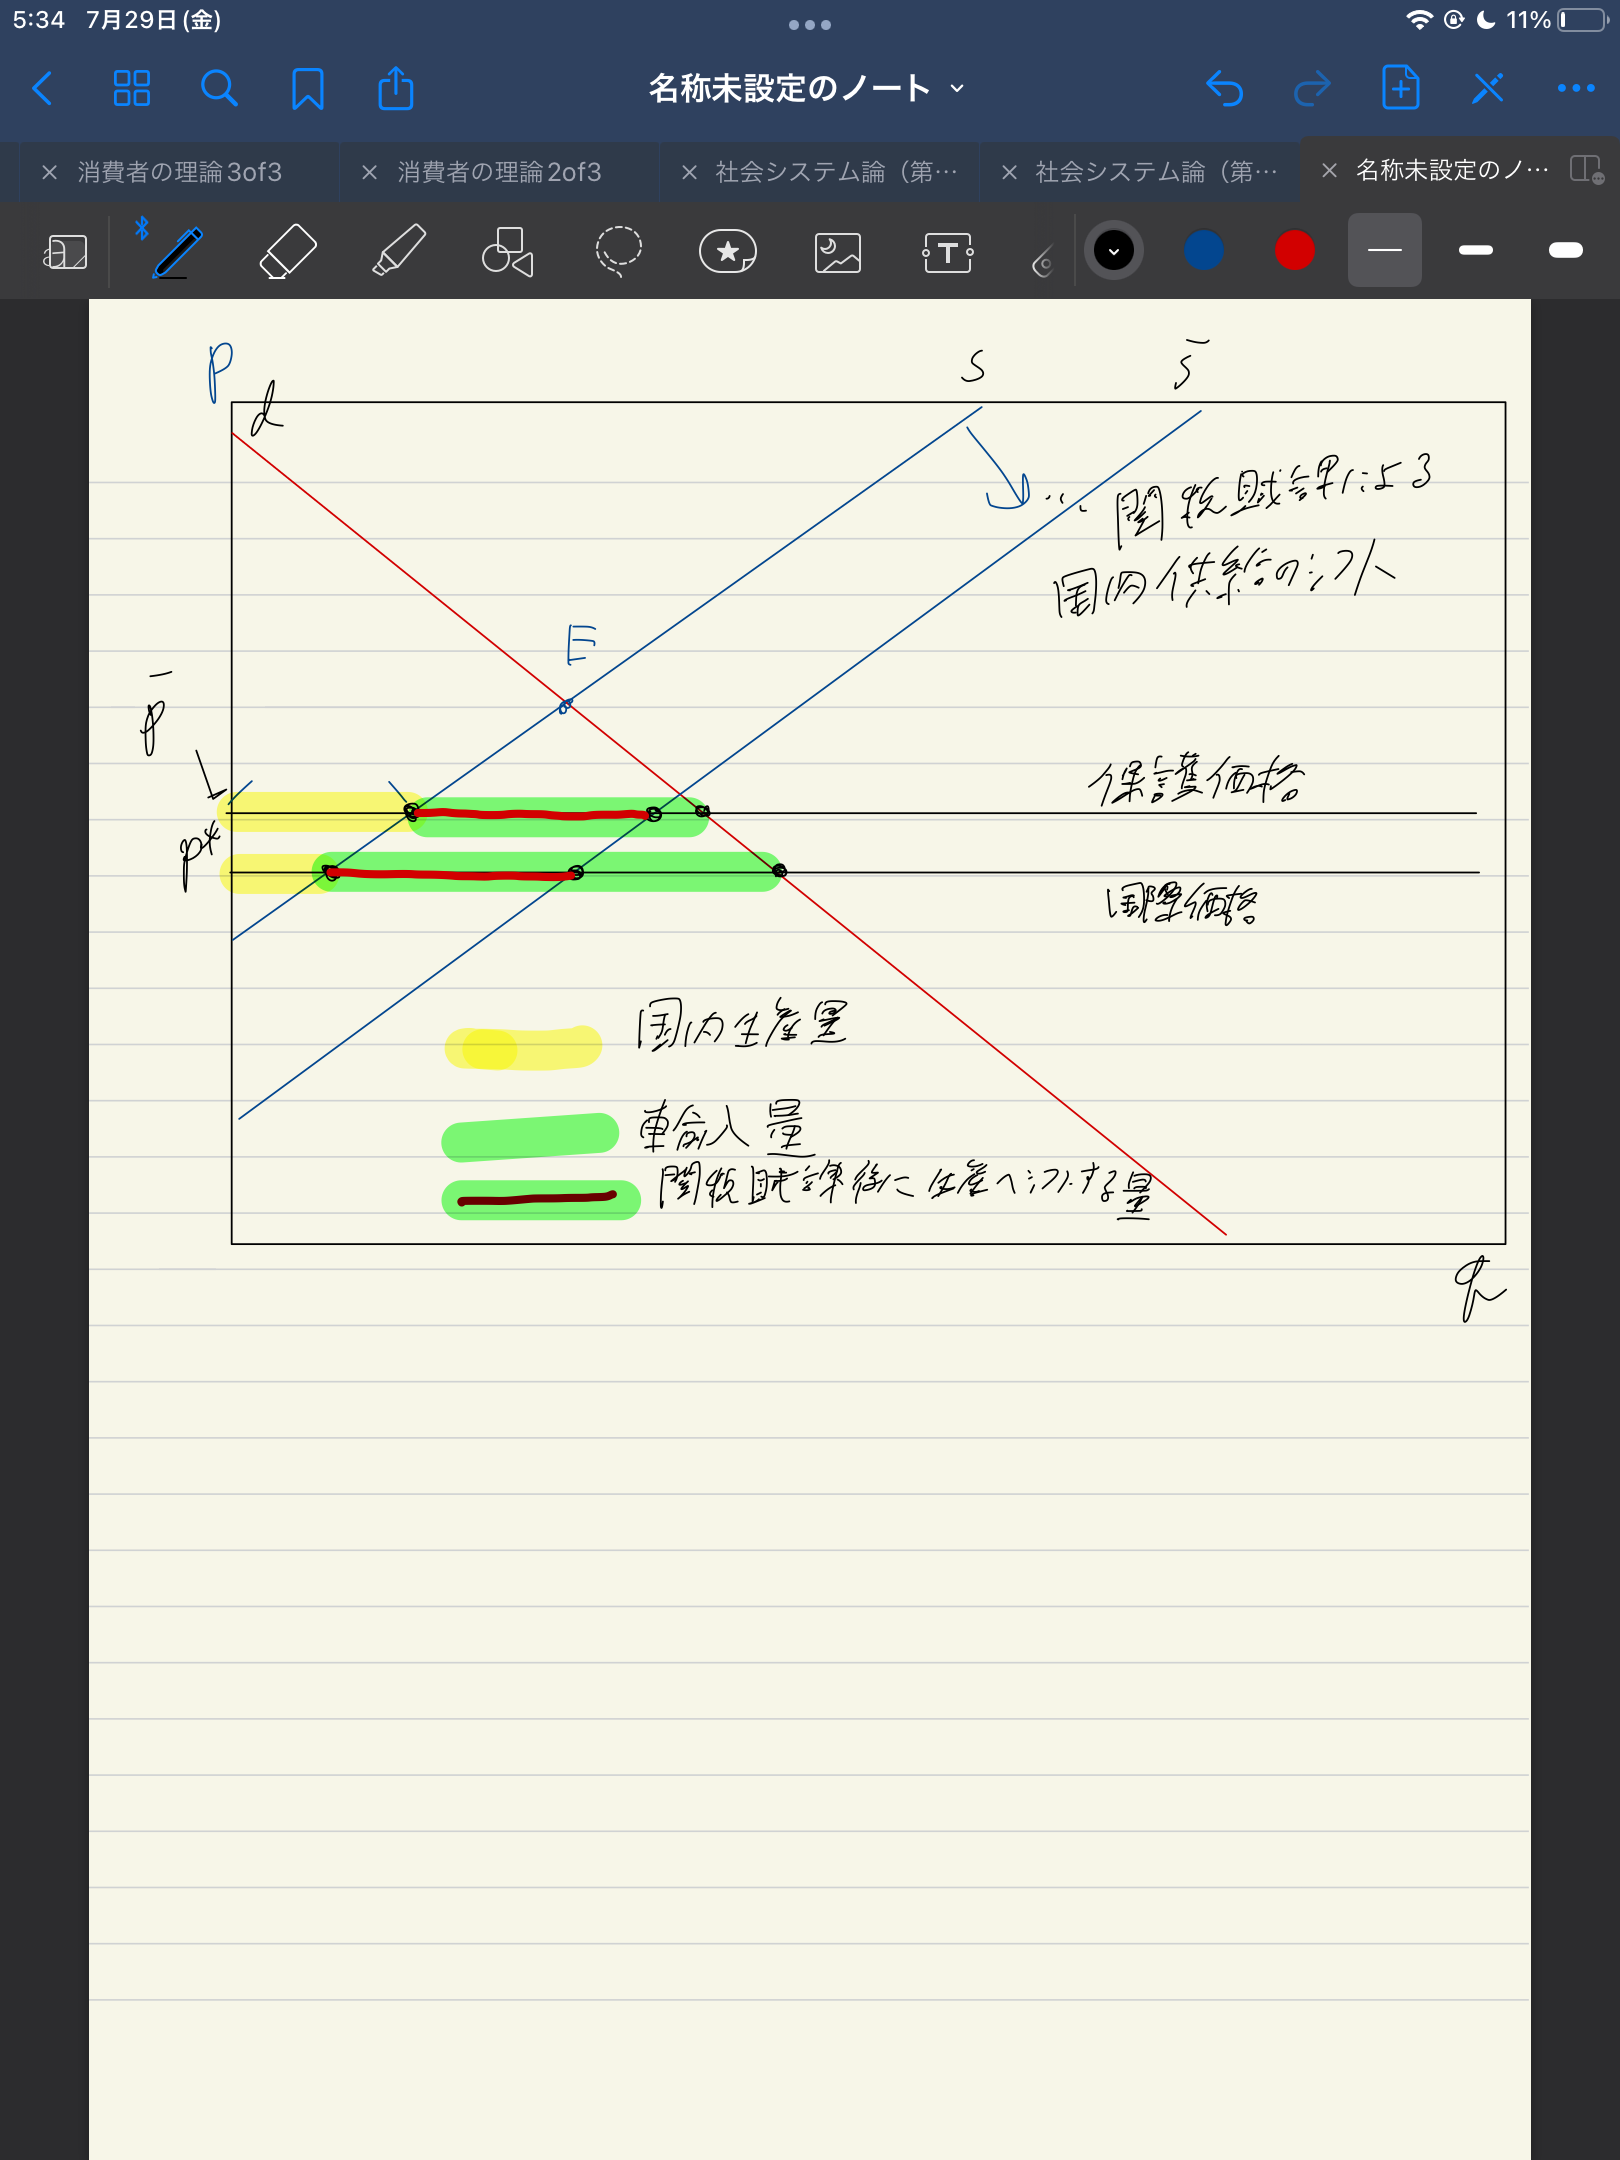 5:34 7月29日(金) 11%
名称未設定のノート
消費者の理論3of3
消費者の理論2of3
社会システム論（第…
社会システム論（第…
名称未設定のノ…
P
d
s
s̄
関税賦課による
国内供給のシフト
E
p̄
保護価格
p*
国際価格
国内生産量
輸入量
関税賦課後に生産へシフトする量
q